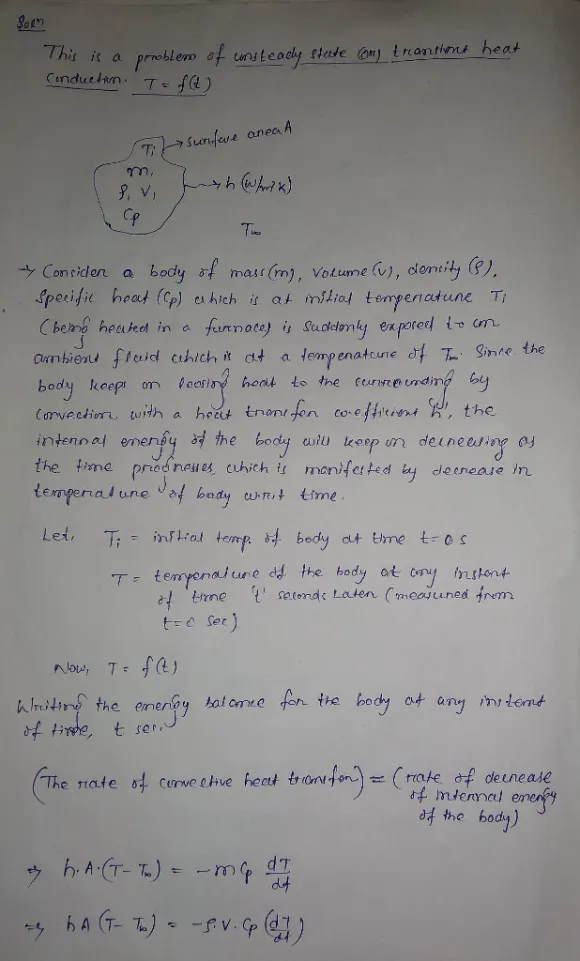 Soln
This is a problem of unsteady state (or) transient heat
Conduction. T = f(t)
Ti → surface area A
m,
ρ, V,
Cp
→ h (W/m²K)
T∞
→ Consider a body of mass (m), volume (v), density (ρ),
Specific heat (Cp) which is at initial temperature Ti
(being heated in a furnace) is suddenly exposed to an
ambient fluid which is at a temperature of T∞. Since the
body keeps on loosing heat to the surrounding by
convection with a heat transfer co-efficient 'h', the
internal energy of the body will keep on decreasing as
the time progresses, which is manifested by decrease in
temperature of body w.r.t time.
Let, Ti = initial temp. of body at time t=0 s
T = temperature of the body at any instant
of time 't' seconds later (measured from
t=0 sec)
Now, T = f(t)
Writing the energy balance for the body at any instant
of time, t sec.
(The rate of convective heat transfer) = (rate of decrease
of internal energy
of the body)
⇒ h.A.(T- T∞) = -m Cp dT/dt
⇒ hA (T- T∞) = -ρ.V. Cp (dT/dt)